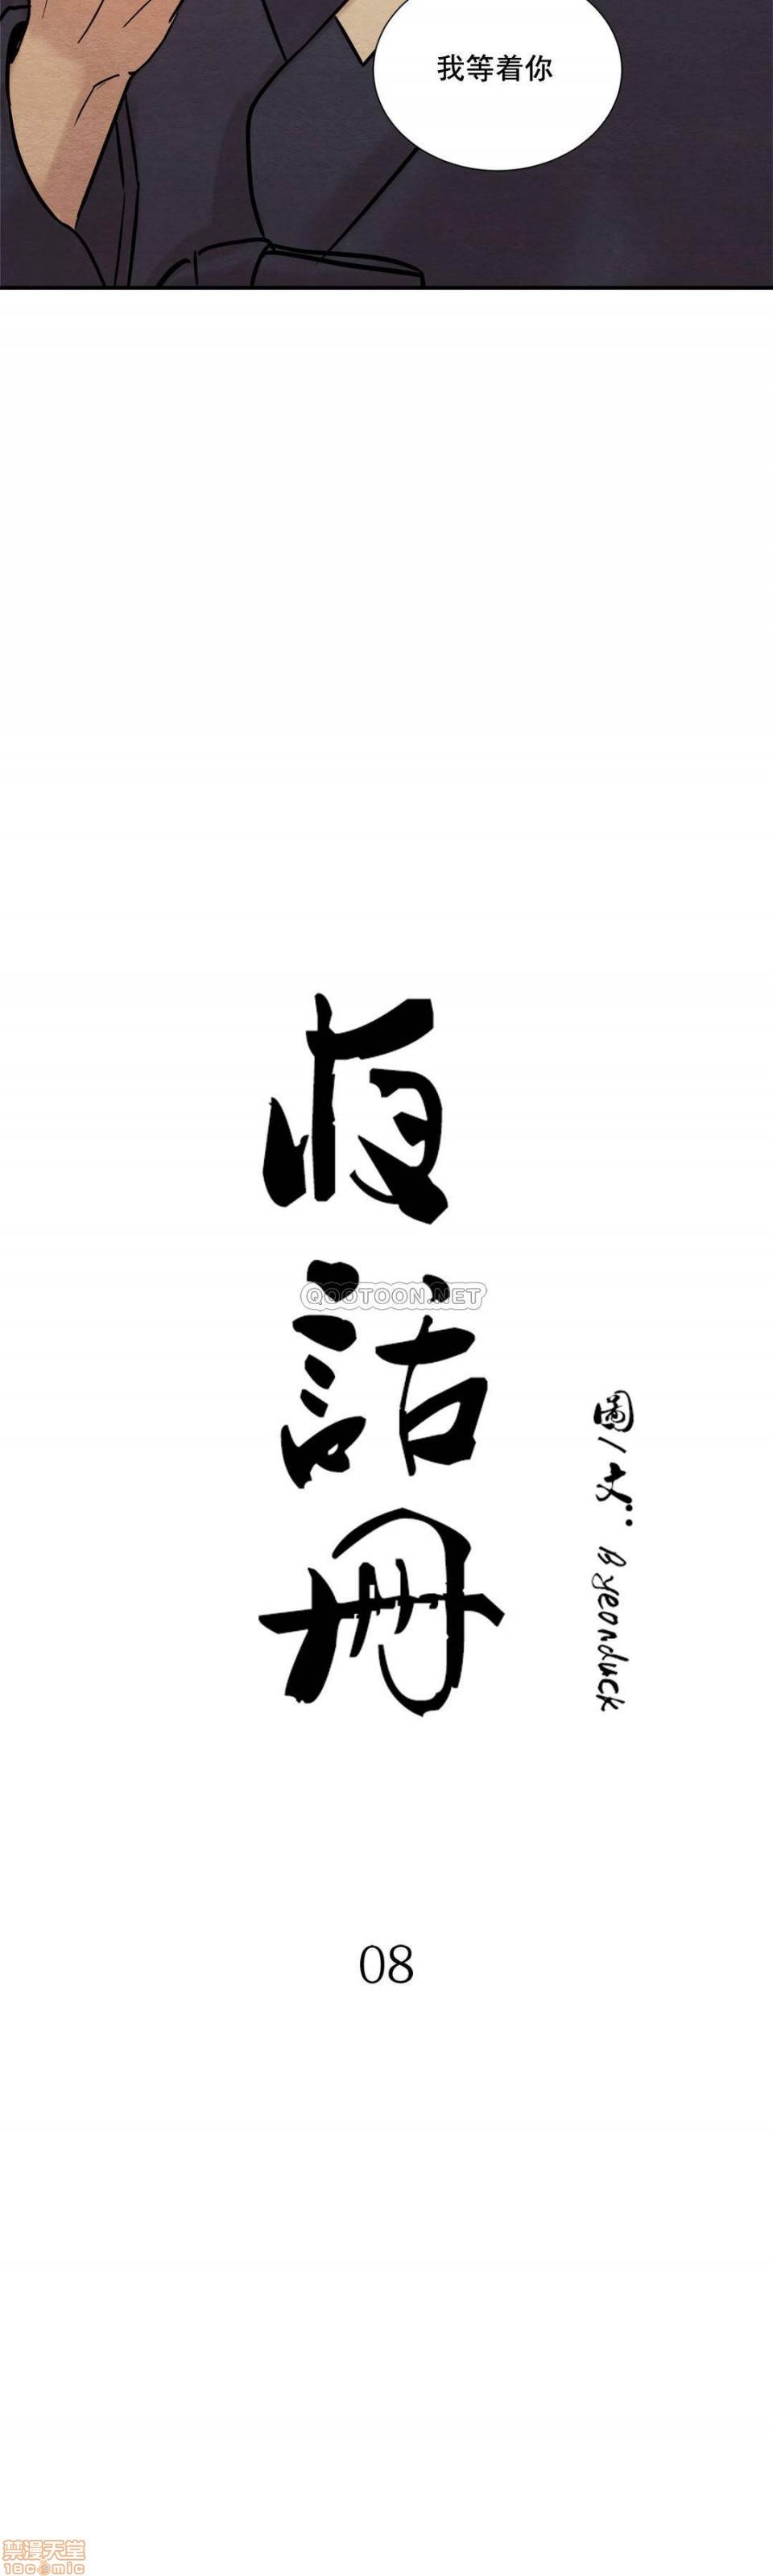 我等着你
夜話冊
QOOTOON.NET
圖/文: Byeonduck
08
禁漫天堂
18comic